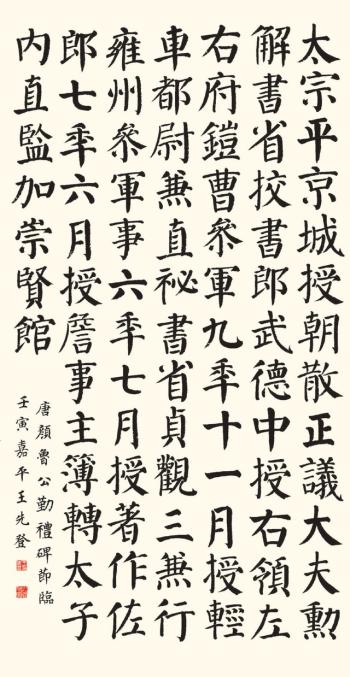 太宗平京城授朝散正議大夫勳
解書省挍書郎武德中授右領左
右府鎧曹叅軍九秊十一月授輕
車都尉兼直祕書省貞觀三兼行
雍州叅軍事六秊七月授著作佐
郎七秊六月授詹事主簿轉太子
內直監加崇賢館
唐顏魯公勤禮碑節臨
壬寅嘉平王先登